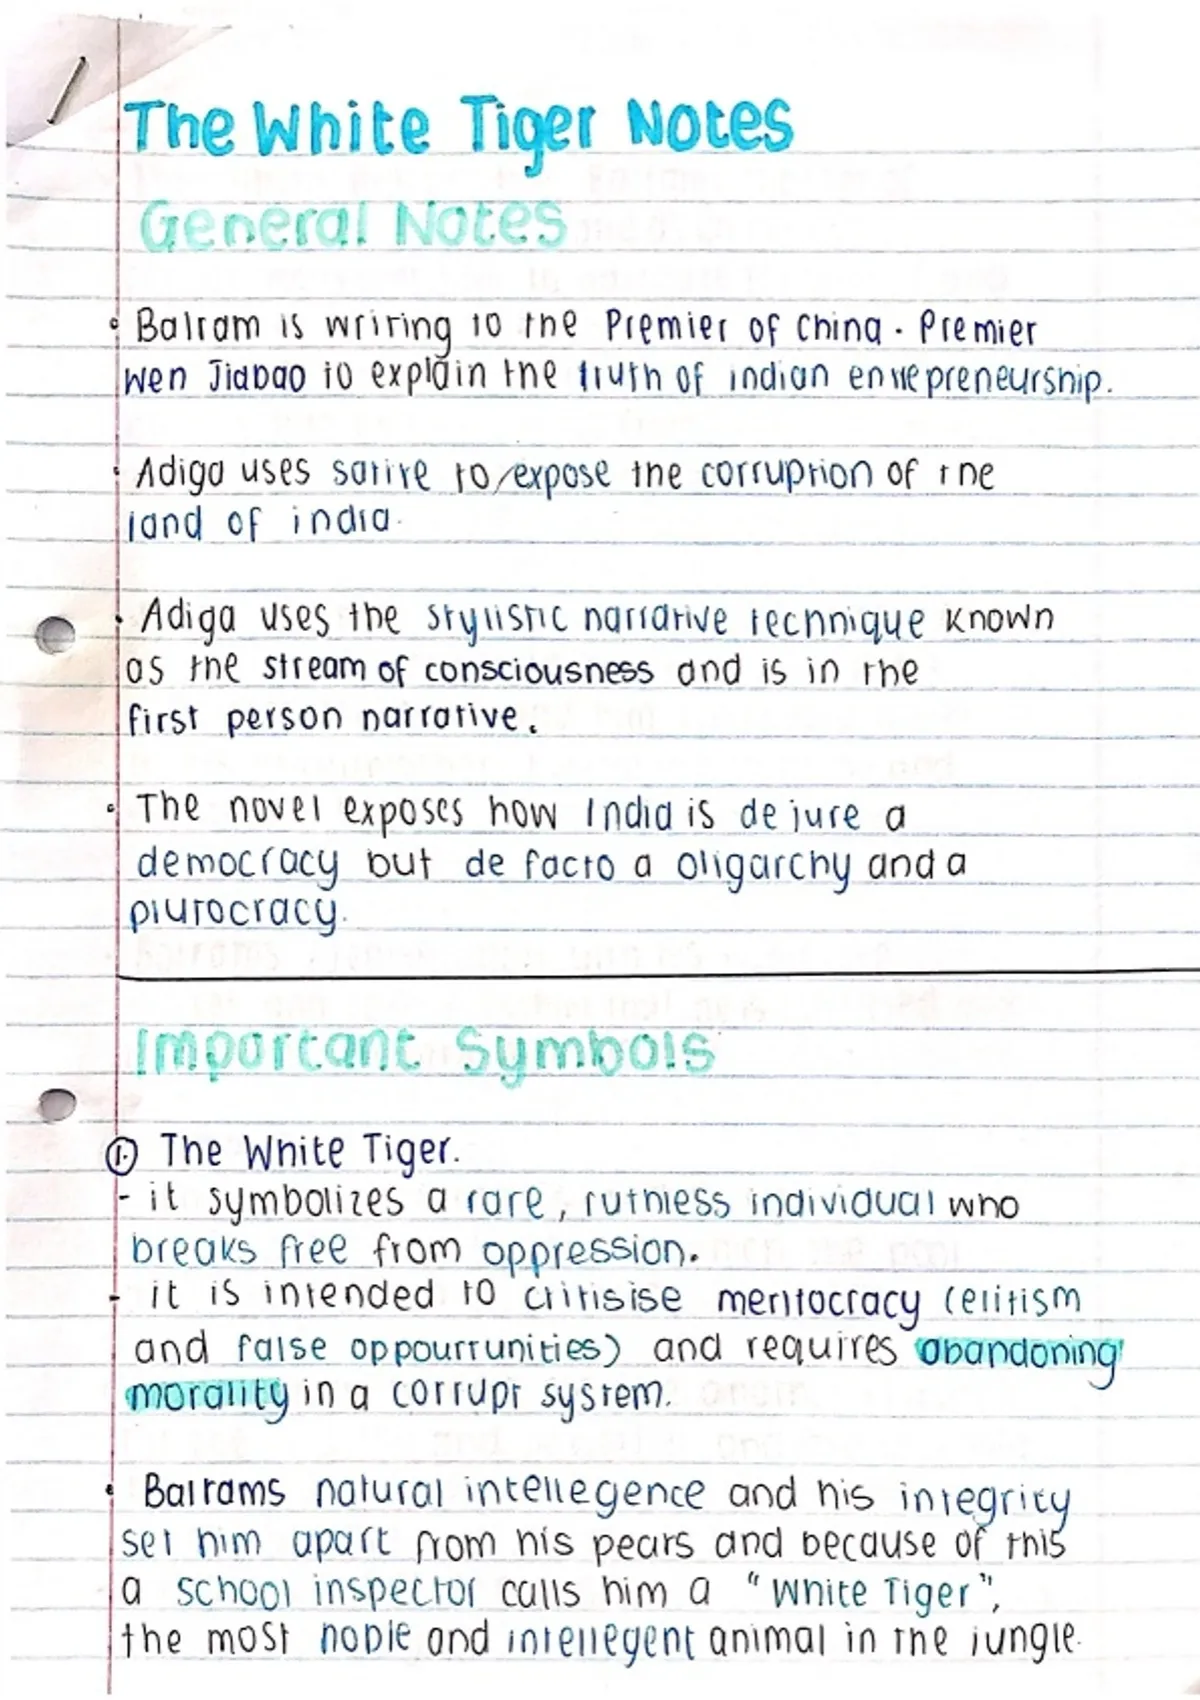 The White Tiger Notes
General Notes
• Balram is writing to the Premier of China. Premier
Wen Jiabao to explain the truth of indian entrepreneurship.
• Adiga uses satire to expose the corruption of the
land of india.
• Adiga uses the stylistic narrative technique known
as the stream of consciousness and is in the
first person narrative.
• The novel exposes how India is de jure a
democracy but de facto a oligarchy and a
plutocracy.
Important Symbols
1. The White Tiger.
- it symbolizes a rare, ruthless individual who
breaks free from oppression.
- it is intended to critisise meritocracy (elitism
and false oppourtunities) and requires abandoning
morality in a corrupt system.
• Balrams natural intellegence and his integrity
set him apart from his pears and because of this
a school inspector calls him a "White Tiger",
the most noble and intellegent animal in the jungle.